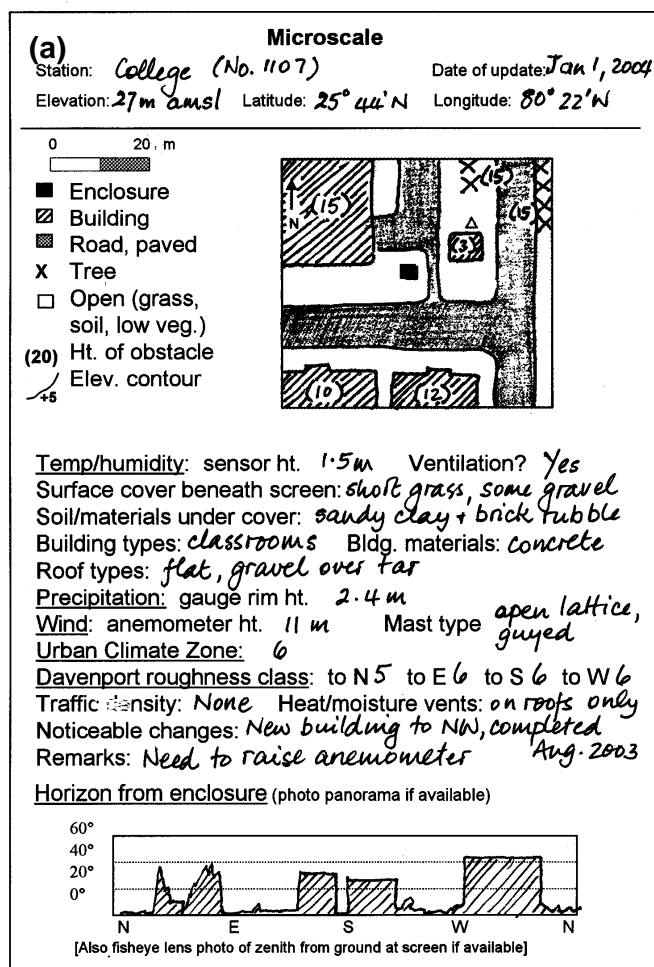 (a) Microscale
Station: College (No. 1107) Date of update: Jan 1, 2004
Elevation: 27m amsl Latitude: 25° 44'N Longitude: 80° 22'W
0 20, m
Enclosure
Building
Road, paved
X Tree
Open (grass,
soil, low veg.)
(20) Ht. of obstacle
Elev. contour
+5
N
(15)
(15)
(15)
(3)
(10)
(12)
Temp/humidity: sensor ht. 1.5m Ventilation? Yes
Surface cover beneath screen: short grass, some gravel
Soil/materials under cover: sandy clay + brick rubble
Building types: classrooms Bldg. materials: concrete
Roof types: flat, gravel over tar
Precipitation: gauge rim ht. 2.4 m
Wind: anemometer ht. 11 m Mast type open lattice,
guyed
Urban Climate Zone: 6
Davenport roughness class: to N 5 to E 6 to S 6 to W 6
Traffic density: None Heat/moisture vents: on roofs only
Noticeable changes: New building to NW, completed
Aug. 2003
Remarks: Need to raise anemometer
Horizon from enclosure (photo panorama if available)
60°
40°
20°
0°
N E S W N
[Also fisheye lens photo of zenith from ground at screen if available]